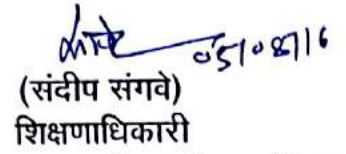 05/08/16
(संदीप संगवे)
शिक्षणाधिकारी